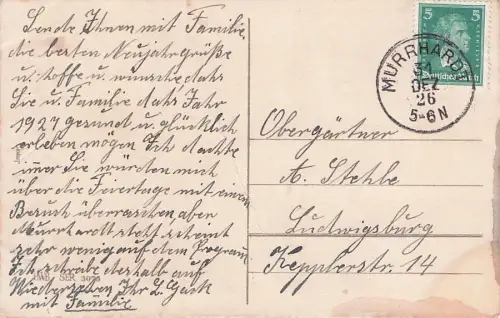 Sende Ihnen mit Familie
die besten Neujahrgrüße
u. hoffe u. wünsche dahs
Sie u. Familie dahs Jahr
1927 gesund u. glücklich
erleben mögen Ich dachte
imer Sie würden mich
über die Feiertage mit einem
Besuch überraschen aber
Murrhardt steht scheint
sehr wenig auf dem Program
Ich schreibe deshalb auf
Wiedersehen Ihr L. Gack
mit Familie
5 5
Deutsches Reich
MURRHARDT
31
DEZ
26
5-6 N
Obergärtner
A. Stehle
Ludwigsburg
Kepplerstr. 14